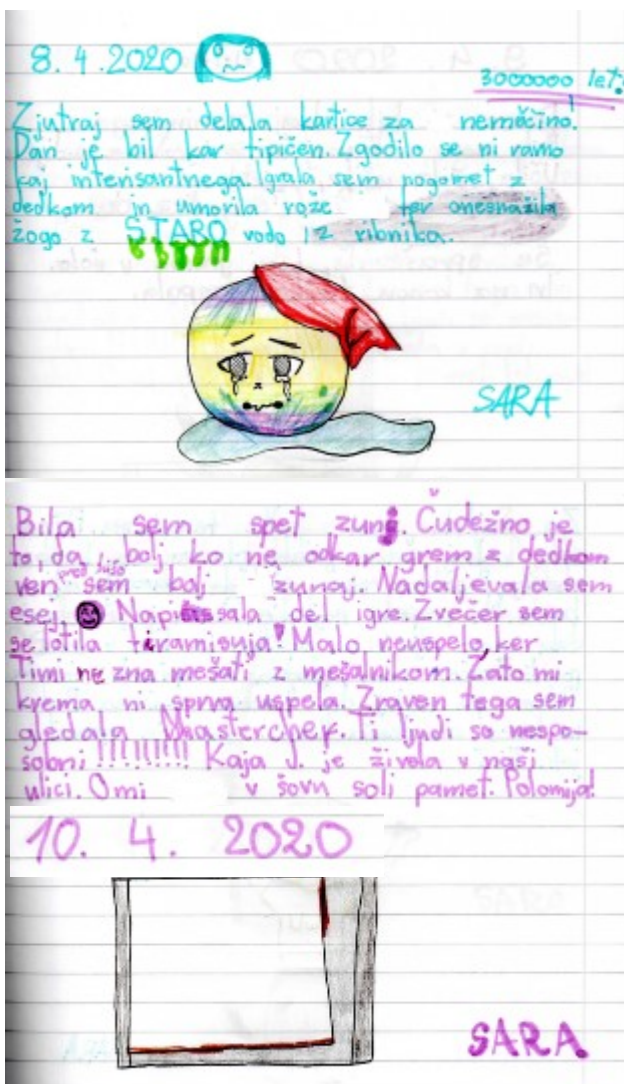 8. 4. 2020
3000000 let!
Zjutraj sem delala kartice za nemščino.
Dan je bil kar tipičen. Zgodilo se ni ravno
kaj interisantnega. Igrala sem nogomet z
dedkom in umorila rože ter onesnažila
žogo z STARO vodo iz ribnika.
SARA
Bila sem spet zunaj. Čudežno je
to, da bolj ko ne odkar grem z dedkom
ven pred hišo sem bolj zunaj. Nadaljevala sem
esej. Napissala del igre. Zvečer sem
se lotila tiramisuja! Malo neuspelo, ker
Timi ne zna mešati z mešalnikom. Zato mi
krema ni sprva uspela. Zraven tega sem
gledala Masterchef. Ti ljudi so nespo-
sobni !!!!!!!!! Kaja J. je živela v naši
ulici. Omi v šovu soli pamet. Polomija!
10. 4. 2020
SARA